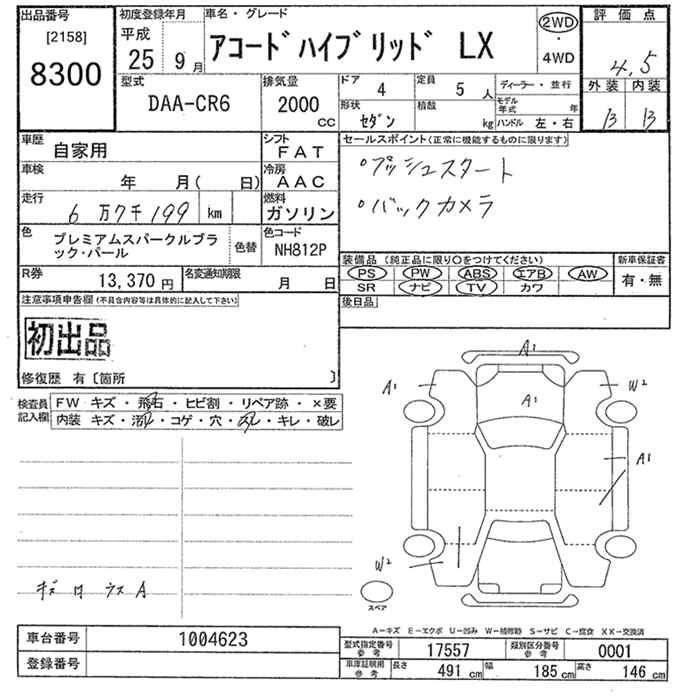 出品番号
[2158]
8300
初度登録年月
平成
25年 9月
車名・グレード
アコードハイブリッド LX
2WD
・
4WD
評価点
4.5
外装 内装
B B
型式
DAA-CR6
排気量
2000
cc
ドア
4
定員
5人
ディーラー・並行
形状
セダン
積載
kg
モデル年式
年
ハンドル 左・右
車歴
自家用
シフト
FAT
車検
年 月( 日)
冷房
AAC
走行
6万7千199 km
燃料
ガソリン
色
プレミアムスパークルブラック・パール
色替
色コード
NH812P
R券
13,370円
名変通知期限
月 日
セールスポイント(正常に機能するものに限ります)
°プッシュスタート
°バックカメラ
装備品(純正品に限り○をつけてください)
新車保証書
PS PW ABS エアB AW
SR ナビ TV カワ
有・無
後日品
注意事項申告欄(不具合内容等は具体的に記入して下さい)
初出品
修復歴 有〔箇所 〕
検査員記入欄
FW キズ・飛石・ヒビ割・リペア跡・×要
内装 キズ・汚れ・コゲ・穴・スレ・キレ・破レ
A1
A1
A1
W2
A1
W2
キズ ウスA
スペア
A-キズ E-エクボ U-凹み W-補修跡 S-サビ C-腐食 XX-交換済
車台番号
1004623
登録番号
型式指定番号参考
17557
類別区分番号参考
0001
車庫証明用参考
長さ 491cm
幅 185cm
高さ 146cm